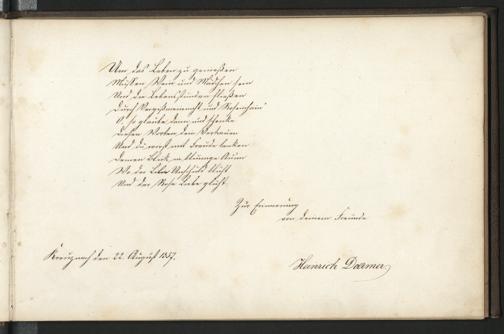 Um das Leben zu genießen
Müssen Wein und Mädchen sein
Und die Lebensstunden fließen
Durch Vergißmeinnicht und Rosenhain
O, so glaube dann und schenke
Diesen Worten dein Vertrauen
Und du wirst mit Freude lenken
Deinen Blick in blumige Auen
Wo der Liebe blüht
Und der Rose Liebe glüht
Zur Erinnerung
von deinem Freunde
Kreuznach den 22 August 1857.
Heinrich Daemer